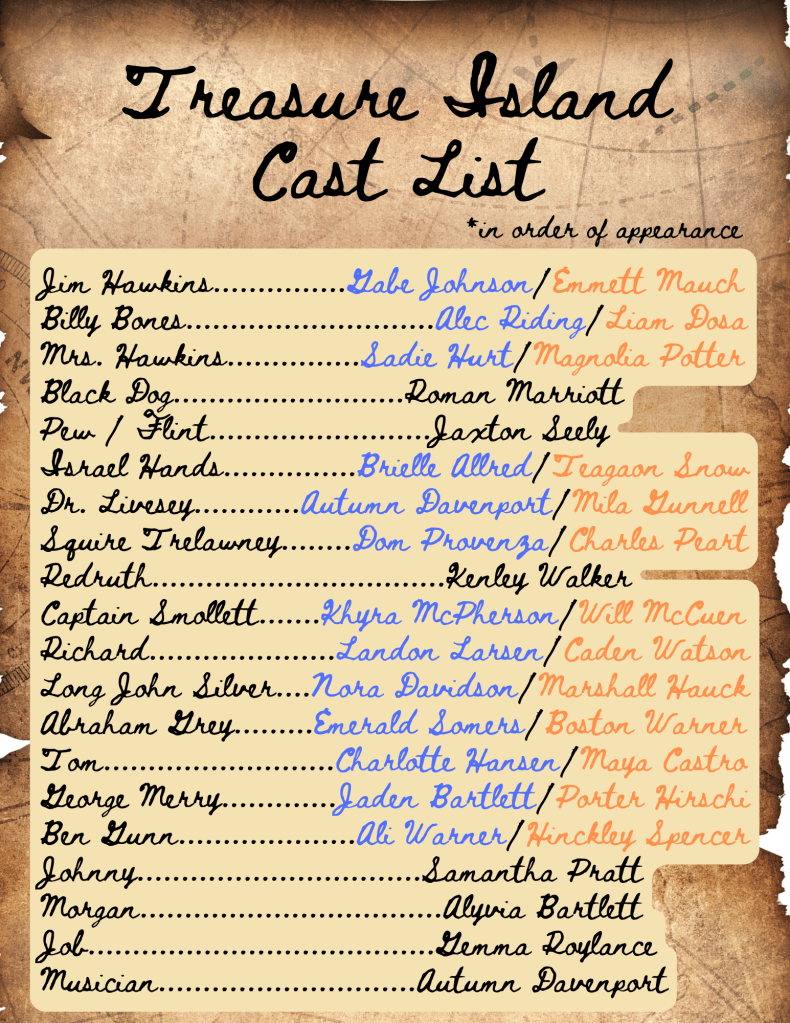 Treasure Island
Cast List
*in order of appearance
Jim Hawkins...............Gabe Johnson/Emmett Mauch
Billy Bones............................Alec Riding/Liam Dosa
Mrs. Hawkins...............Sadie Hurt/Magnolia Potter
Black Dog..........................Roman Marriott
Pew / Flint.........................Jaxton Seely
Israel Hands...............Brielle Allred/Teagaon Snow
Dr. Livesey............Autumn Davenport/Mila Gunnell
Squire Trelawney........Dom Provenza/Charles Peart
Redruth.................................Kenley Walker
Captain Smollett.......Khyra McPherson/Will McCuen
Richard.....................Landon Larsen/Caden Watson
Long John Silver....Nora Davidson/Marshall Hauck
Abraham Grey.........Emerald Somers/Boston Warner
Tom..........................Charlotte Hansen/Maya Castro
George Merry.............Jaden Bartlett/Porter Hirschi
Ben Gunn....................Ali Warner/Hinckley Spencer
Johnny................................Samantha Pratt
Morgan..................................Alyvia Bartlett
Job.......................................Gemma Roylance
Musician.............................Autumn Davenport